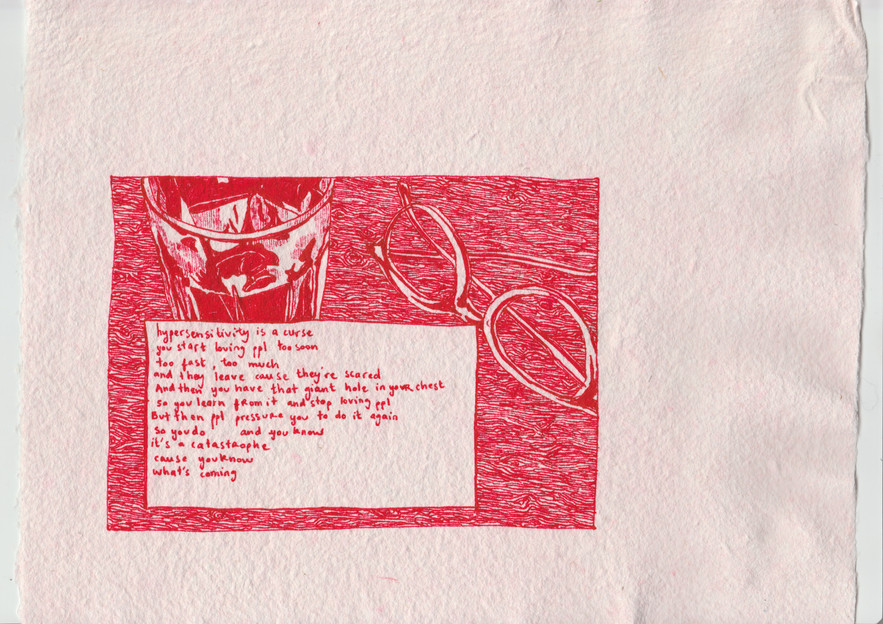 hypersensitivity is a curse
you start loving ppl too soon
too fast, too much
and they leave cause they're scared
And then you have that giant hole in your chest
so you learn from it and stop loving ppl
But then ppl pressure you to do it again
so you do and you know
it's a catastrophe
cause you know
what's coming